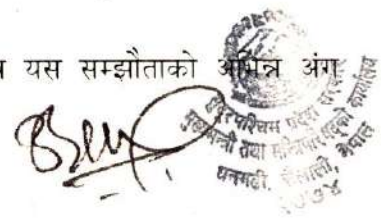 यस सम्झौताको अभिन्न अंग
सुदूरपश्चिम प्रदेश सरकार
मुख्यमन्त्री तथा मन्त्रिपरिषद्को कार्यालय
धनगढी, कैलाली, नेपाल
२०७४